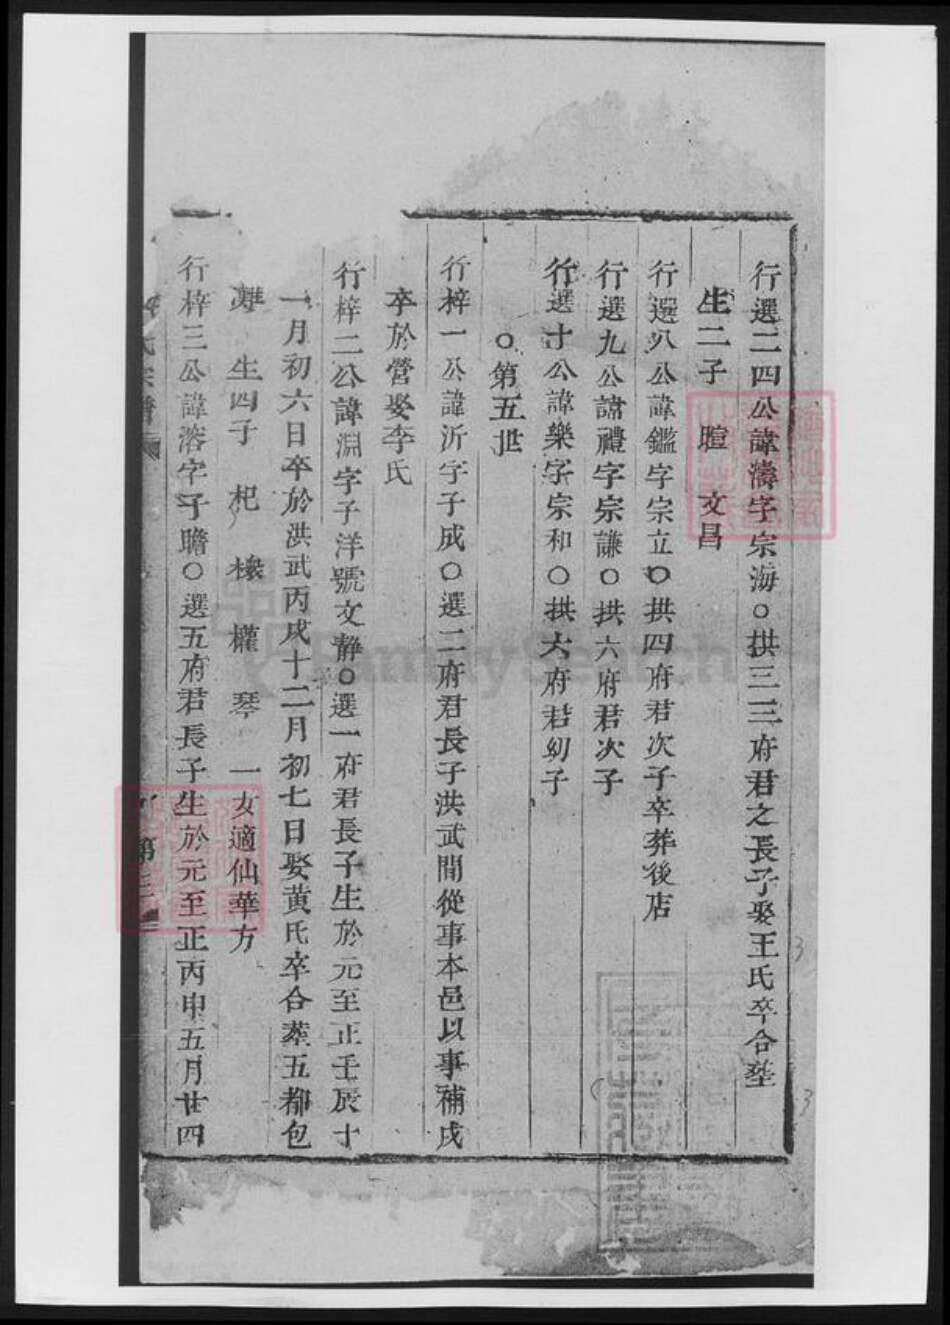 行選二四公諱濤字宗海○拱三三府君之長子娶王氏卒合塟
生二子 暄 文昌
行選八公諱鑑字宗立○拱四府君次子卒葬後店
行選九公諱禮字宗謙○拱六府君次子
行選十公諱樂字宗和○拱六府君幼子
○第五世
行梓一公諱沂字子成○選二府君長子洪武間從事本邑以事補戍
卒於營娶李氏
行梓二公諱淵字子洋號文静○選一府君長子生於元至正壬辰十
一月初六日卒於洪武丙戍十二月初七日娶黄氏卒合葬五都包
生四子 杞 權 琴 一女適仙華方
行梓三公諱溶字子瞻○選五府君長子生於元至正丙申五月廿四
氏宗譜 第三
FamilySearch